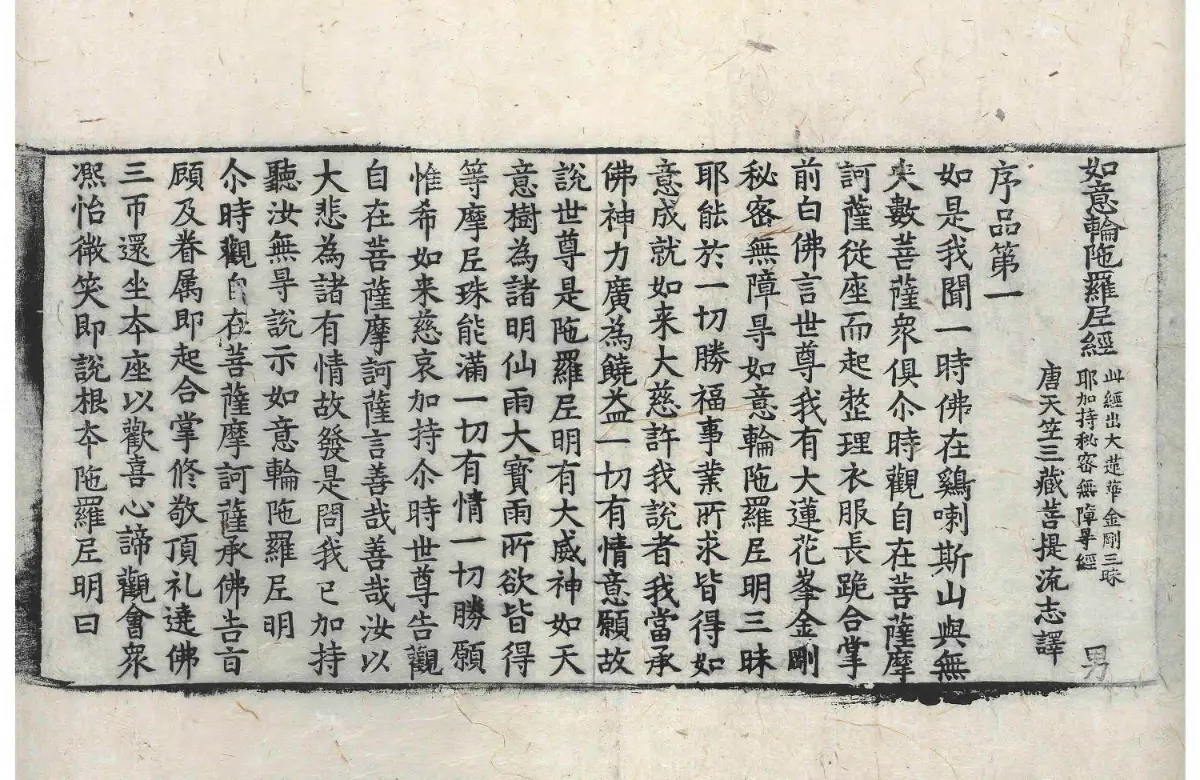 如意輪陁羅尼經
此經出大蓮華金剛三昧
耶加持秘密無障㝵經
男
唐天笁三藏菩提流志譯
序品第一
如是我聞一時佛在雞喇斯山與無
央數菩薩衆俱尒時觀自在菩薩摩
訶薩從座而起整理衣服長跪合掌
前白佛言世尊我有大蓮花峯金剛
秘密無障㝵如意輪陁羅尼明三昧
耶能於一切勝福事業所求皆得如
意成就如来大慈許我說者我當承
佛神力廣為饒益一切有情意願故
說世尊是陁羅尼明有大威神如天
意樹為諸明仙雨大寶雨所欲皆得
等摩尼珠能滿一切有情一切勝願
惟希如来慈哀加持尒時世尊告觀
自在菩薩摩訶薩言善哉善哉汝以
大悲為諸有情故發是問我已加持
聽汝無㝵說示如意輪陁羅尼明
尒時觀自在菩薩摩訶薩承佛告言
顧及眷属即起合掌修敬頂礼遶佛
三帀還坐夲座以歡喜心諦觀會衆
凞怡微笑即說根夲陁羅尼明曰